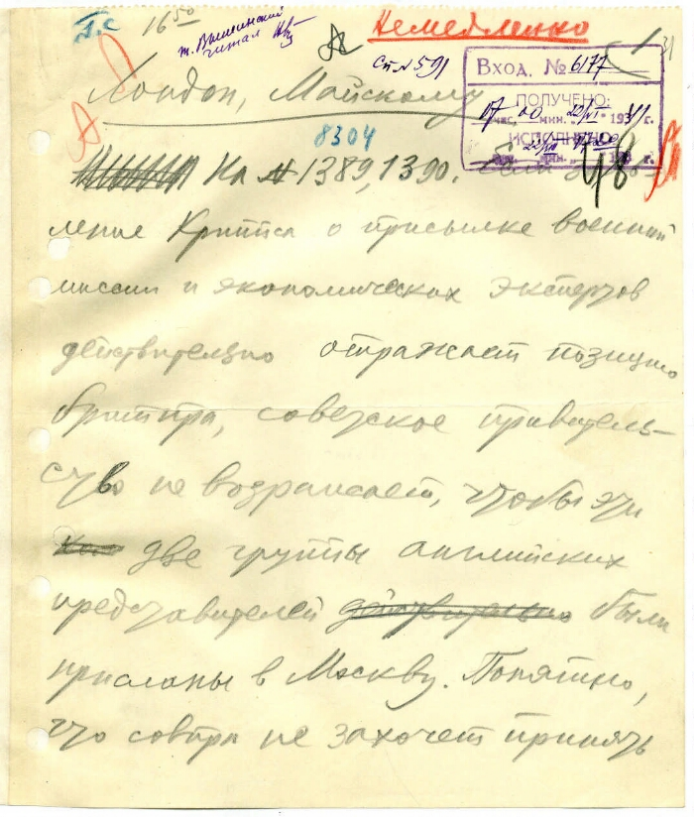 I.c
16 50
т. Вышинский
читал
Немедленно
Сп. № 591
Вход. № 6177
ПОЛУЧЕНО:
17 час. 00 мин. 22/VI 1941 г.
ИСПОЛНЕНО
Лондон, Майскому
8304
48
На № 1389, 1390. Если заяв-
ление Криппса о присылке военной
миссии и экономических экспертов
действительно отражает позицию
бритпра, советское правитель-
ство не возражает, чтобы эти
две группы английских
представителей действительно были
присланы в Москву. Понятно,
что совпра не захочет принять